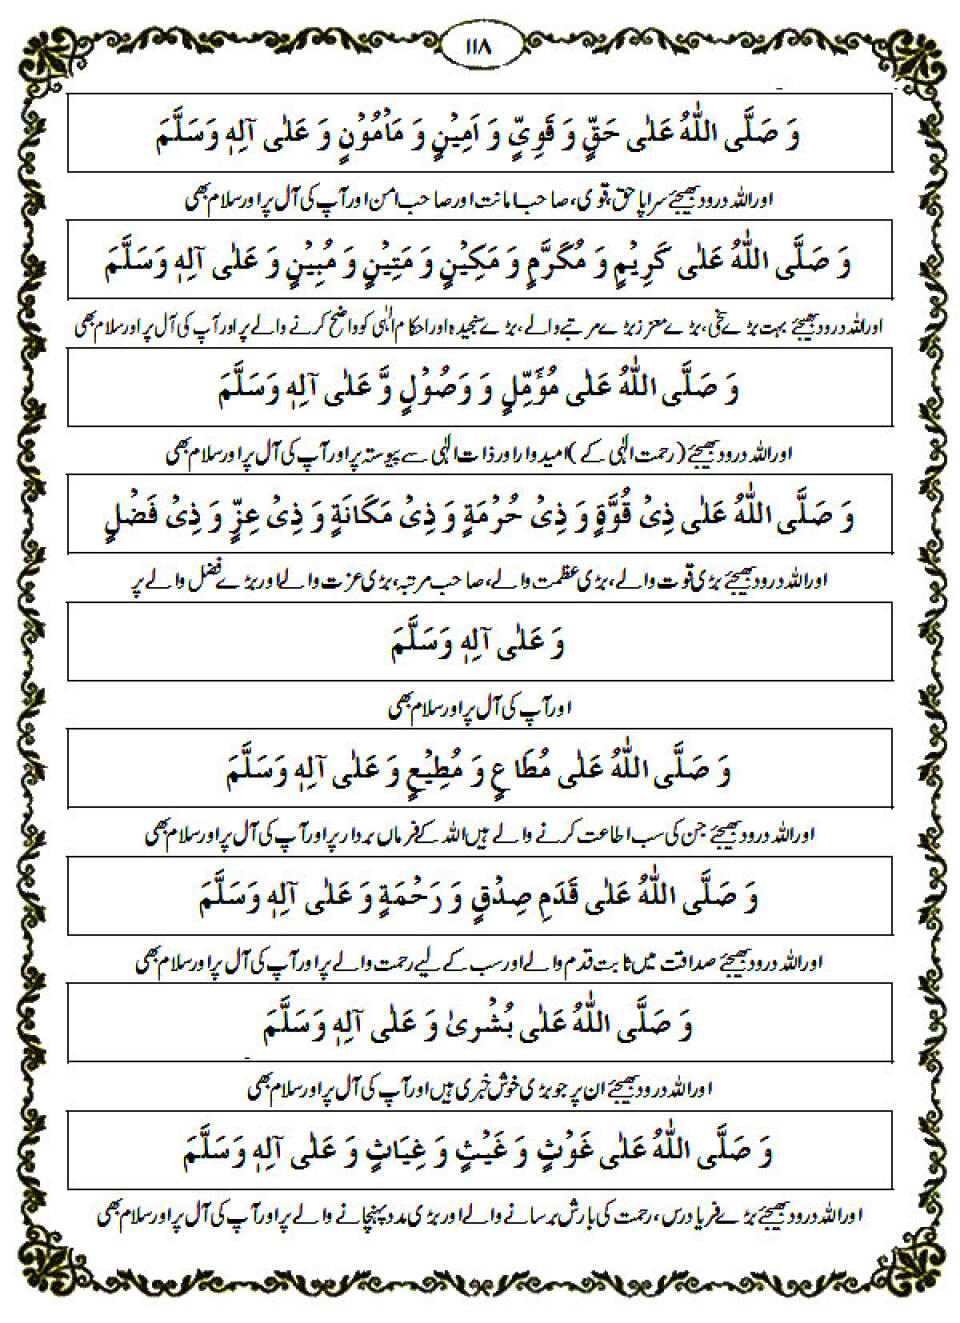 ۱۱۸
وَ صَلَّى اللّٰهُ عَلٰى حَقٍّ وَ قَوِيٍّ وَ اَمِيْنٍ وَ مَاْمُوْنٍ وَ عَلٰى آلِهٖ وَسَلَّمَ
اور اللہ درود بھیجئے سراپا حق، قوی، صاحب امانت اور صاحب امن اور آپ کی آل پر اور سلام بھی
وَ صَلَّى اللّٰهُ عَلٰى كَرِيْمٍ وَ مُكَرَّمٍ وَ مَكِيْنٍ وَ مَتِيْنٍ وَ مُبِيْنٍ وَ عَلٰى آلِهٖ وَسَلَّمَ
اور اللہ درود بھیجئے بہت بڑے سخی، بڑے معزز بڑے مرتبے والے، بڑے سنجیدہ اور احکام الٰہی کو واضح کرنے والے پر اور آپ کی آل پر اور سلام بھی
وَ صَلَّى اللّٰهُ عَلٰى مُؤَمِّلٍ وَ وَصُوْلٍ وَّ عَلٰى آلِهٖ وَسَلَّمَ
اور اللہ درود بھیجئے (رحمت الٰہی کے) امیدوار اور ذات الٰہی سے پیوستہ پر اور آپ کی آل پر اور سلام بھی
وَ صَلَّى اللّٰهُ عَلٰى ذِىْ قُوَّةٍ وَ ذِىْ حُرْمَةٍ وَ ذِىْ مَكَانَةٍ وَ ذِىْ عِزٍّ وَ ذِىْ فَضْلٍ
اور اللہ درود بھیجئے بڑی قوت والے، بڑی عظمت والے، صاحب مرتبہ، بڑی عزت والے اور بڑے فضل والے پر
وَ عَلٰى آلِهٖ وَسَلَّمَ
اور آپ کی آل پر اور سلام بھی
وَ صَلَّى اللّٰهُ عَلٰى مُطَاعٍ وَ مُطِيْعٍ وَ عَلٰى آلِهٖ وَسَلَّمَ
اور اللہ درود بھیجئے جن کی سب اطاعت کرنے والے ہیں اللہ کے فرماں بردار پر اور آپ کی آل پر اور سلام بھی
وَ صَلَّى اللّٰهُ عَلٰى قَدَمِ صِدْقٍ وَ رَحْمَةٍ وَ عَلٰى آلِهٖ وَسَلَّمَ
اور اللہ درود بھیجئے صداقت میں ثابت قدم والے اور سب کے لیے رحمت والے پر اور آپ کی آل پر اور سلام بھی
وَ صَلَّى اللّٰهُ عَلٰى بُشْرىٰ وَ عَلٰى آلِهٖ وَسَلَّمَ
اور اللہ درود بھیجئے ان پر جو بڑی خوش خبری ہیں اور آپ کی آل پر اور سلام بھی
وَ صَلَّى اللّٰهُ عَلٰى غَوْثٍ وَ غَيْثٍ وَ غِيَاثٍ وَ عَلٰى آلِهٖ وَسَلَّمَ
اور اللہ درود بھیجئے بڑے فریادرس، رحمت کی بارش برسانے والے اور بڑی مدد پہنچانے والے پر اور آپ کی آل پر اور سلام بھی